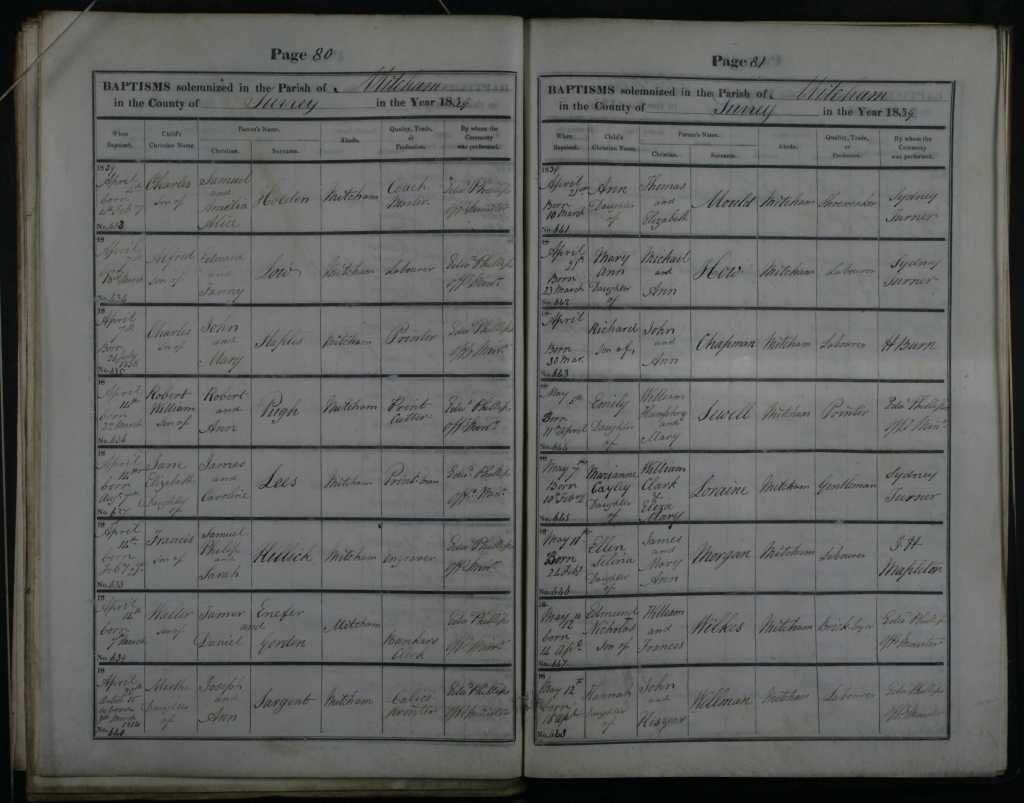 Page 80
BAPTISMS solemnized in the Parish of Mitcham
in the County of Surrey in the Year 1839
When Baptized.
Child's Christian Name.
Parent's Name.
Christian.
Surname.
Abode.
Quality, Trade, or Profession.
By whom the Ceremony was performed.
1839
April
born
Charles
Son of
Samuel
and
Amelia
Alice
Holden
Mitcham
Coach
Master
Edwd Phillips
Offg Minister
No. 633
18
April
Alfred
Son of
Edward
and
Fanny
Low
Mitcham
Labourer
Edwd Phillips
Offg Minr.
No. 634
18
April
7th
Born
Charles
Son of
John
and
Mary
Staples
Mitcham
Printer
Edwd Phillips
Offg Minr.
No. 635
18
April
14th
born
22 March
Robert
William
Son of
Robert
and
Ann
Pugh
Mitcham
Print
Cutter
Edwd Phillips
Offg Minr.
No. 636
18
April
14th
born
Jane
Elizabeth
Daughter
of
James
and
Caroline
Lees
Mitcham
Edwd Phillips
Offg Minr.
No. 637
18
April
14th
born
Francis
Son of
Samuel
Philip
and
Sarah
Mitcham
Engraver
Edwd Phillips
Offg Minr.
No. 638
18
April
14th
born
7 March
Walter
Son of
and
Daniel
Enefer
Gorden
Mitcham
Bankers
Clerk
Edwd Phillips
Offg Minr.
No. 639
18
April
born
Martha
Daughter
of
Joseph
and
Ann
Sargent
Mitcham
Calico
Printer
Edwd Phillips
Offg Minister
No. 640
Page 81
BAPTISMS solemnized in the Parish of Mitcham
in the County of Surrey in the Year 1839
When Baptized.
Child's Christian Name.
Parent's Name.
Christian.
Surname.
Abode.
Quality, Trade, or Profession.
By whom the Ceremony was performed.
1839
April
21st
Born
10 March
Ann
Daughter
of
Thomas
and
Elizabeth
Mould
Mitcham
Shoemaker
Sydney
Turner
No. 641
18
April
21st
Born
23 March
Mary
Ann
Daughter
of
Michael
and
Ann
How
Mitcham
Labourer
Sydney
Turner
No. 642
18
April
Born
30 Mar.
Richard
Son of
John
and
Ann
Chapman
Mitcham
Labourer
H Burn
No. 643
18
May
5th
Born
11th April
Emily
Daughter
of
William
Humphry
and
Mary
Sewell
Mitcham
Printer
Edwd Phillips
Offg Minr.
No. 644
18
May 7th
Born
Marianne
Cayley
Daughter
of
William
Clark
&
Eliza
Mary
Loraine
Mitcham
Gentleman
Sydney
Turner
No. 645
18
May 10th
Born
Ellen
Selina
Daughter
of
James
and
Mary
Ann
Morgan
Mitcham
Labourer
Mapleton
No. 646
18
May
12
born
14 Apl.
Edmund
Nicholas
Son of
William
and
Frances
Wilkes
Mitcham
Bricklayer
Edwd Phillips
Offg Minister
No. 647
18
May 12th
born
Hannah
Daughter
of
John
and
Willman
Mitcham
Labourer
Edwd Phillips
Offg Minister
No. 648